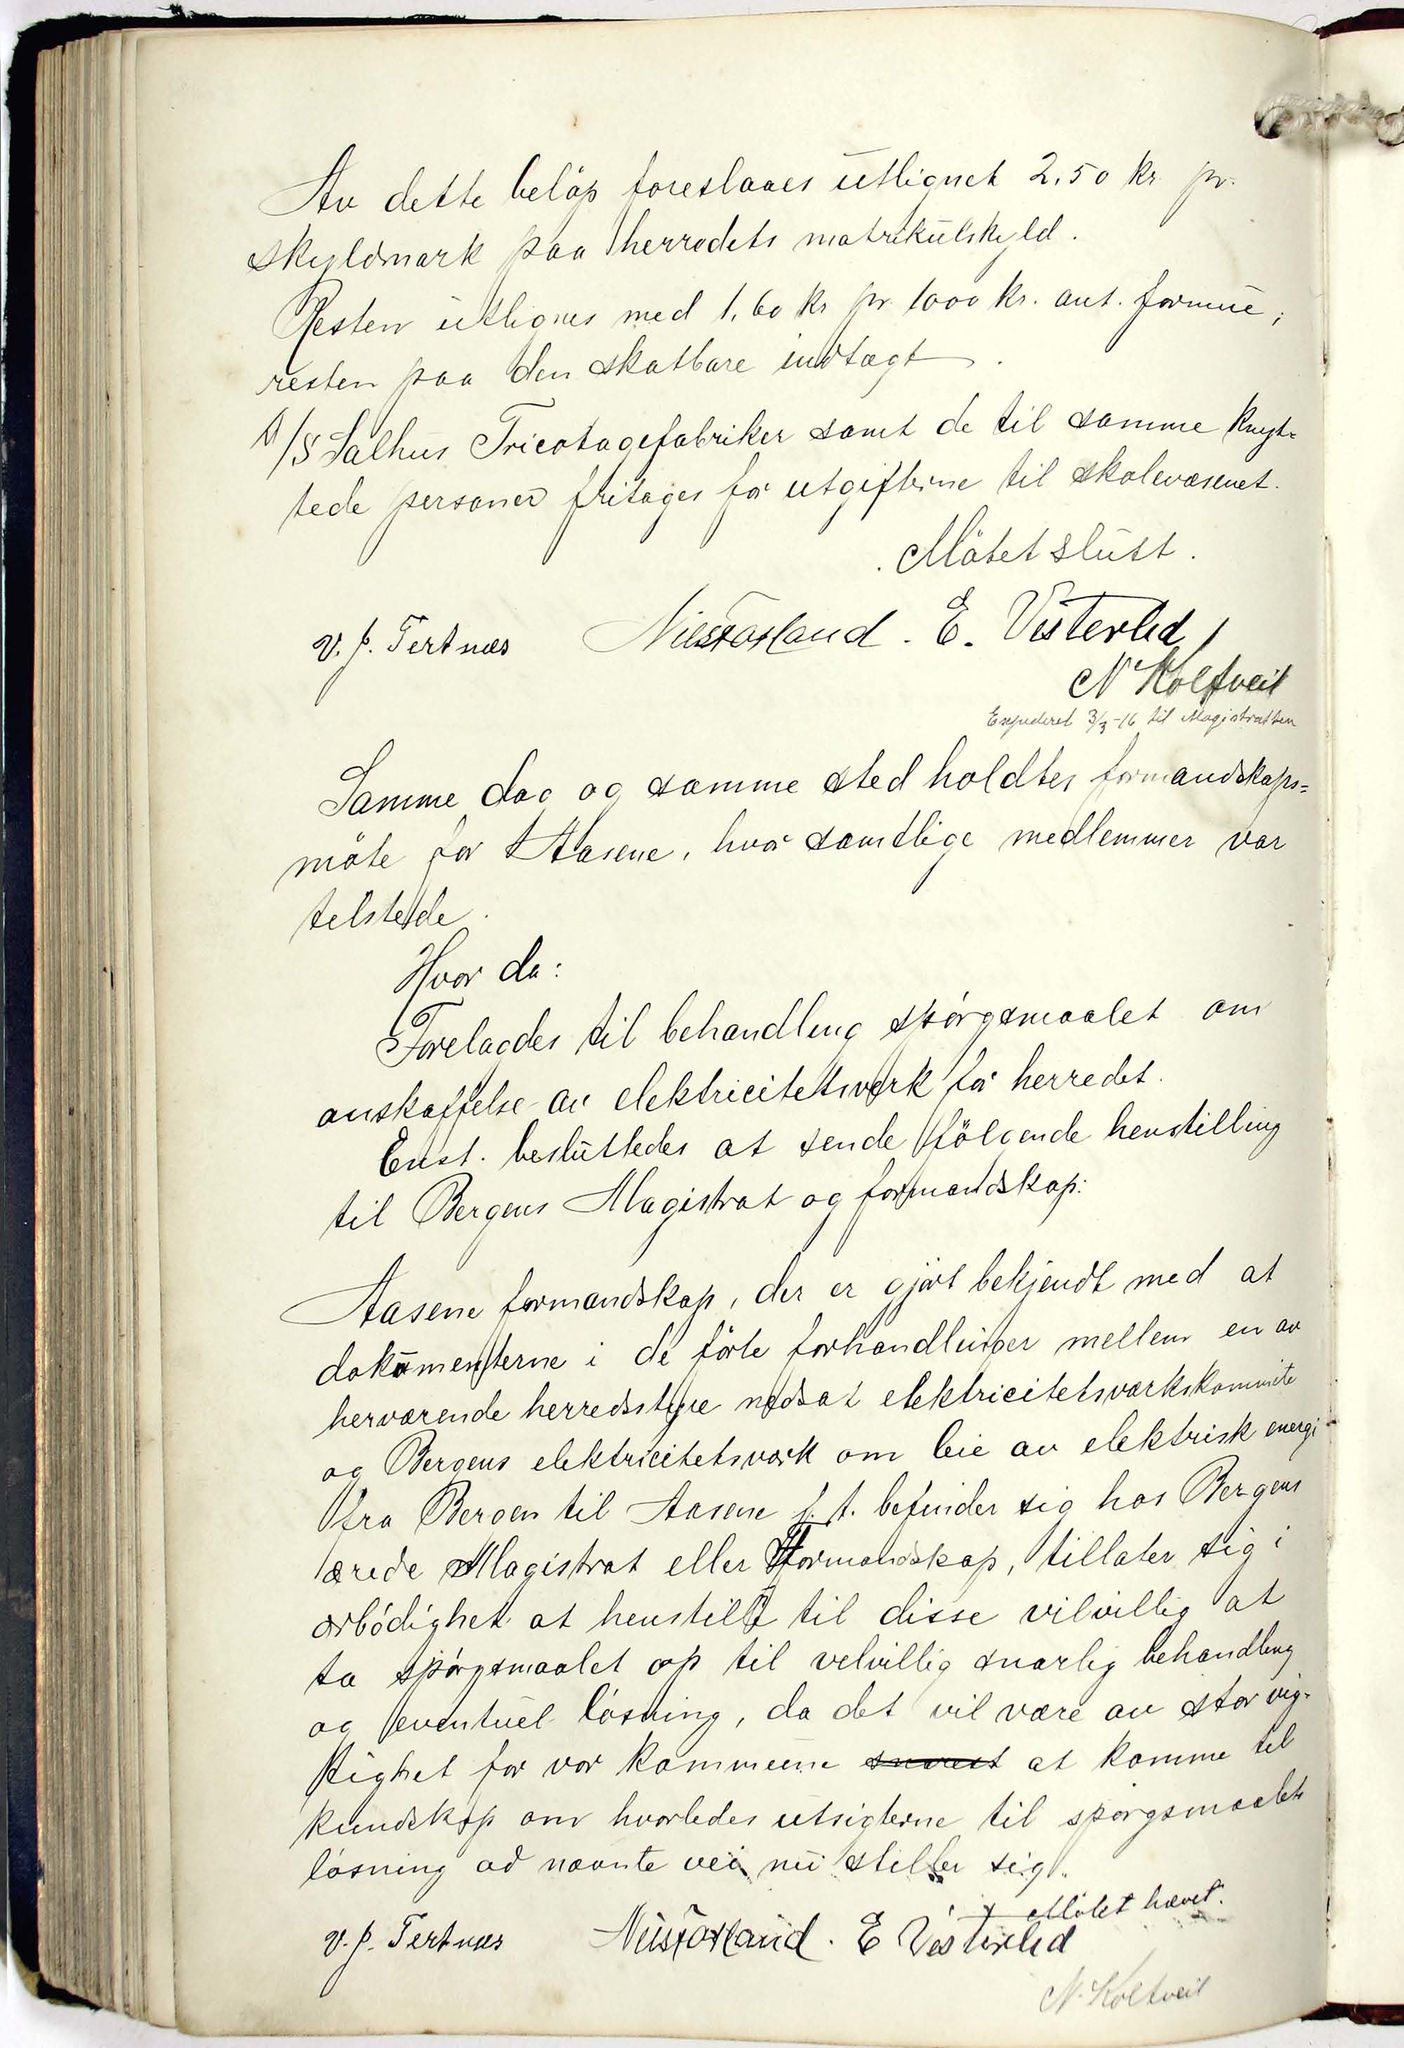 Av dette beløp foreslaaes utlignet 2.50 kr pr.
skyldmark paa herredets matrikulskyld.
Resten utlignes med 1,60 kr pr 1000 kr. ant. formue;
resten paa den skatbare indtægt.
A/S Salhus Tricotagefabriker samt de til samme knyt-
tede personer fritages for utgifterne til skolevæsenet.
Møtet slutt.
V. J. Tertnæs Nils Forland. E. Vesterlid
N Koltveit
Expederet 3/3-16 til Magistratten
Samme dag og samme sted holdtes formandskaps=
møte for Aasene, hvor samtlige medlemmer var
telstede.
Hvor da:
Forelagdes til behandling spörgsmaalet om
anskaffelse av elektricitetsverk for herredet.
Enst. besluttedes at sende fölgende henstilling
til Bergens Magistrat og formandskap:
Aasene formandskap, der er gjort bekjendt med at
dokumenterne i de förte forhandlinger mellem en av
herværende herredsstyre nedsat elektricitetsværkskomite
og Bergens elektricitetsværk om leie av elektrisk energi
fra Bergen til Aasene f. t. befinder sig hos Bergens
ærede Magistrat eller Formandskap, tillater sig i
ærbödighet at henstille til disse vilvillig at
ta spörgsmaalet op til velvillig snarlig behandling
og eventuel lösning, da det vil være av stor vig-
tighet for vor kommune snarest at komme til
kundskap om hvorledes utsigterne til spörgsmaalets
lösning ad nævnte vei nu stiller sig.
Mötet hævet.
V. J. Tertnæs Nils Forland. E Vesterlid
N. Koltveit